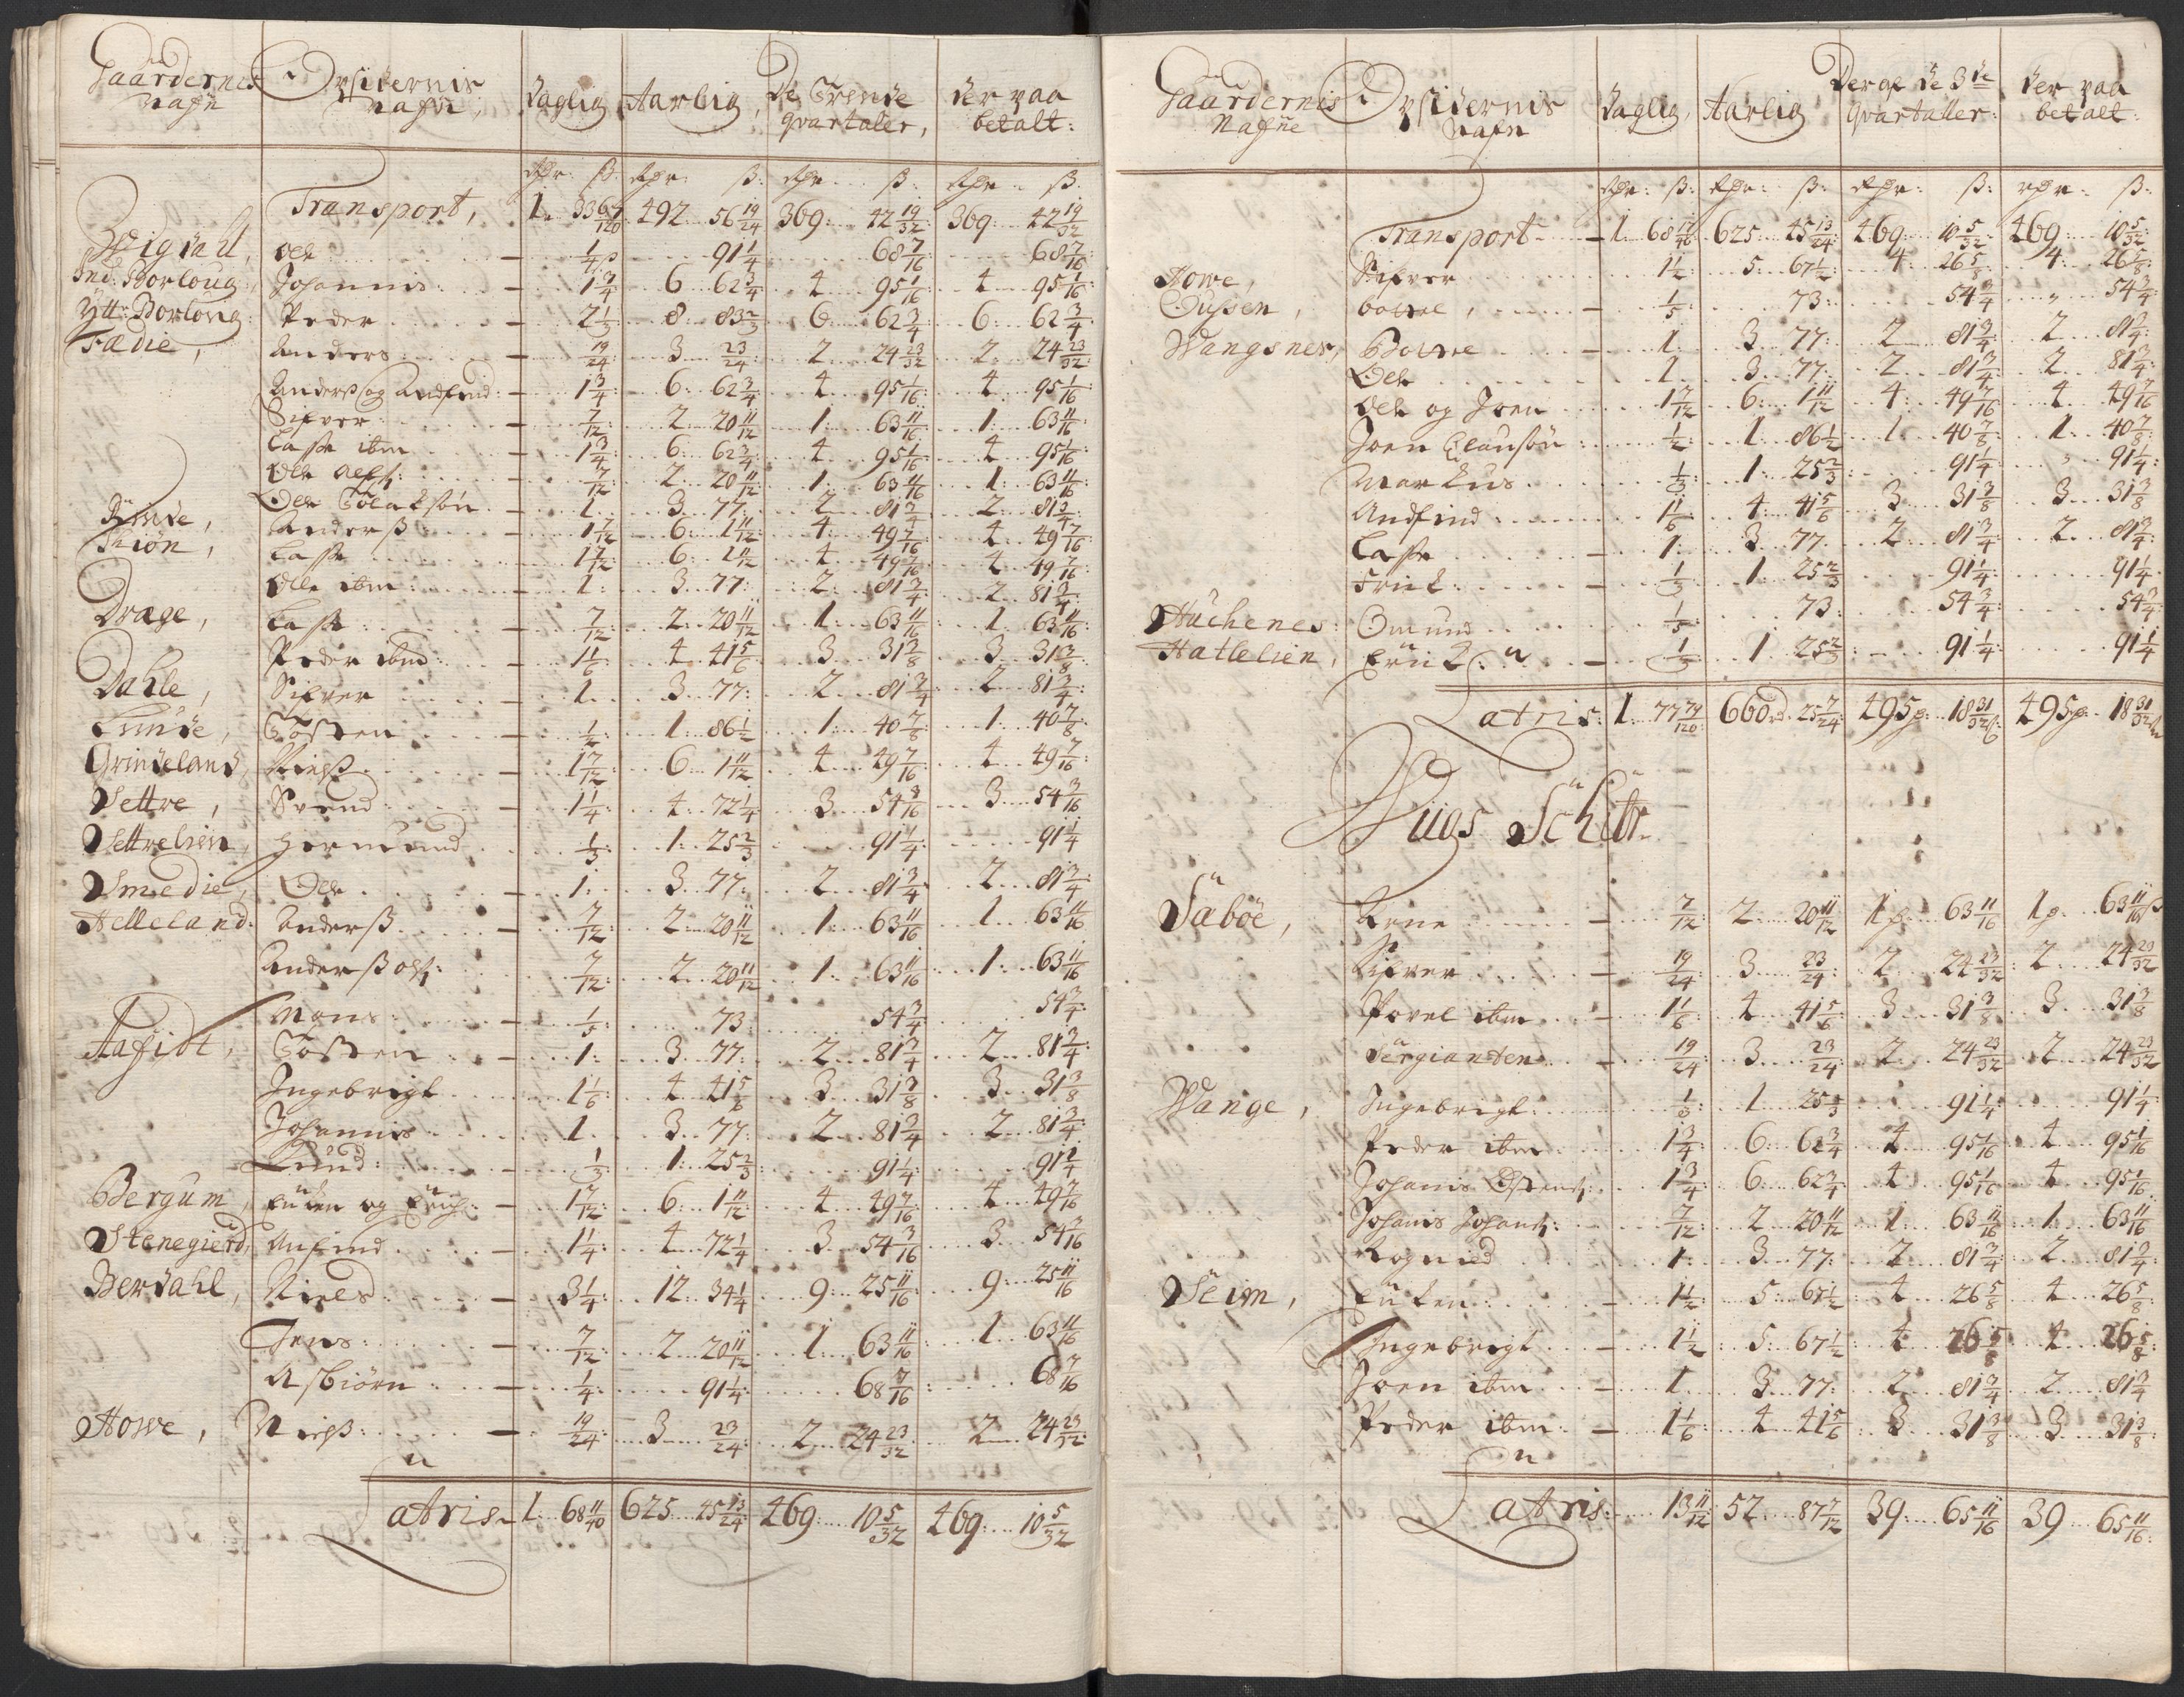 Gaardernes Opsidernis Daglig Aarlig De Trende der paa
Nafn Nafn qvartaler, betalt:
Rdr: ß: Rdr: ß: Rdr ß: Rdr ß:
Transport, 1 33 67/120 492 56 19/24 369 42 19/32 369 42 19/32
Ole 1/4 ß 91 1/4 68 7/16 68 7/16
Ind: Borloug Johannis 1 3/4 6 62 3/4 4 95 1/16 4 95 1/16
Ytt: Borloug Peder 2 1/3 8 83 2/3 6 62 3/4 6 62 3/4
Fædie, Anders 19/24 3 23/24 2 24 23/32 2 24 23/32
Anders og Andfind 1 3/4 6 62 3/4 4 95 1/16 4 95 1/16
Sifver 7/12 2 20 11/12 1 63 11/16 1 63 11/16
Lasse ibm 1 3/4 6 62 3/4 4 95 1/16 4 95 1/16
Ole Olss: 7/12 2 20 11/12 1 63 11/16 1 63 11/16
Ole 1 3 77 2 81 3/4 2 81 3/4
Anderß 1 7/12 6 1 11/12 4 49 7/16 4 49 7/16
Lasse 1 7/12 6 1 11/12 4 49 7/16 4 49 7/16
Olle ibm 1 3 77 2 81 3/4 2 81 3/4
Drage, Lasse 7/12 2 20 11/12 1 63 11/16 1 63 11/16
Peder ibm 1 1/6 4 41 5/6 3 31 3/8 3 31 3/8
Dahle, Sifver 1 3 77 2 81 3/4 2 81 3/4
Lunde, Tosten 1/2 1 86 1/2 1 40 7/8 1 40 7/8
Grindeland, Nielß 1 7/12 6 1 11/12 4 49 7/16 4 49 7/16
Settre, Svend 1 1/4 4 72 1/4 3 54 3/16 3 54 3/16
Settrelien, Hermund 1/3 1 25 2/3 91 1/4 91 1/4
Smedie, Ole 1 3 77 2 81 3/4 2 81 3/4
Helleland Anderß 7/12 2 20 11/12 1 63 11/16 1 63 11/16
Anderß Olss: 7/12 2 20 11/12 1 63 11/16 1 63 11/16
Mons 1/5 73 54 3/4 54 3/4
Tosten 1 3 77 2 81 3/4 2 81 3/4
Ingebrigt 1 1/6 4 41 5/6 3 31 3/8 3 31 3/8
Johannis 1 3 77 2 81 3/4 2 81 3/4
1/3 1 25 2/3 91 1/4 91 1/4
Bergum, og Erich 1 7/12 6 1 11/12 4 49 7/16 4 49 7/16
Stenegierd, Anfind 1 1/4 4 72 1/4 3 54 3/16 3 54 3/16
Berdahl, Niels 3 1/4 12 34 1/4 9 25 11/16 9 25 11/16
Jens 7/12 2 20 11/12 1 63 11/16 1 63 11/16
Asbiørn 1/4 91 1/4 68 7/16 68 7/16
Howe, Nielß 19/24 3 23/24 2 24 23/32 2 24 23/32
Latris 1 68 11/40 625 45 13/24 469 10 5/32 469 10 5/32
Gaardernis Opsidernis Daglig, Aarlig Der af de 3de der paa
Nafne Nafn Qvartaller: betalt:
Rdr: ß: Rdr: ß: Rdr: ß: Rdr: ß:
Transport 1 68 11/40 625 45 13/24 469 10 5/32 469 10 5/32
Howe, Sifver 1 1/2 5 67 1/2 4 26 5/8 4 26 5/8
1/5 73 54 3/4 54 3/4
Wangsnes, 1 3 77 2 81 3/4 2 81 3/4
Ole 1 3 77 2 81 3/4 2 81 3/4
Ole og Joen 1 7/12 6 1 11/12 4 49 7/16 4 49 7/16
Joen Clausön 1/2 1 86 1/2 1 40 7/8 1 40 7/8
Markus 1/3 1 25 2/3 91 1/4 91 1/4
Andfind 1 1/6 4 41 5/6 3 31 3/8 3 31 3/8
Lasse 1 3 77 2 81 3/4 2 81 3/4
1/3 1 25 2/3 91 1/4 91 1/4
Omund 1/5 73 54 3/4 54 3/4
Hatlelien, 1/3 1 25 2/3 91 1/4 91 1/4
Latris: 1 77 79/120 660 rd 25 7/24 495 18 31/32 495 18 31/32
Wiigs Schibr
Säböe, Arne 7/12 2 20 11/12 1 63 11/16 1 63 11/16 ß
Sifver 19/24 3 23/24 2 24 23/32 2 24 23/32
Povel ibm 1 1/6 4 41 5/6 3 31 3/8 3 31 3/8
Sergianten 19/24 3 23/24 2 24 23/32 2 24 23/32
Wange, Ingebrigt 1/3 1 25 2/3 91 1/4 91 1/4
Peder ibm 1 3/4 6 62 3/4 4 95 1/16 4 95 1/16
Johanis 1 3/4 6 62 3/4 4 95 1/16 4 95 1/16
Johanis Johans: 7/12 2 20 11/12 1 63 11/16 1 63 11/16
1 3 77 2 81 3/4 2 81 3/4
Seim, 1 1/2 5 67 1/2 4 26 5/8 4 26 5/8
Ingebrigt 1 1/2 5 67 1/2 4 26 5/8 4 26 5/8
Joen ibm 1 3 77 2 81 3/4 2 81 3/4
Peder ibm 1 1/6 4 41 5/6 3 31 3/8 3 31 3/8
Latris: 13 11/12 52 87 7/12 39 65 11/16 39 65 11/16